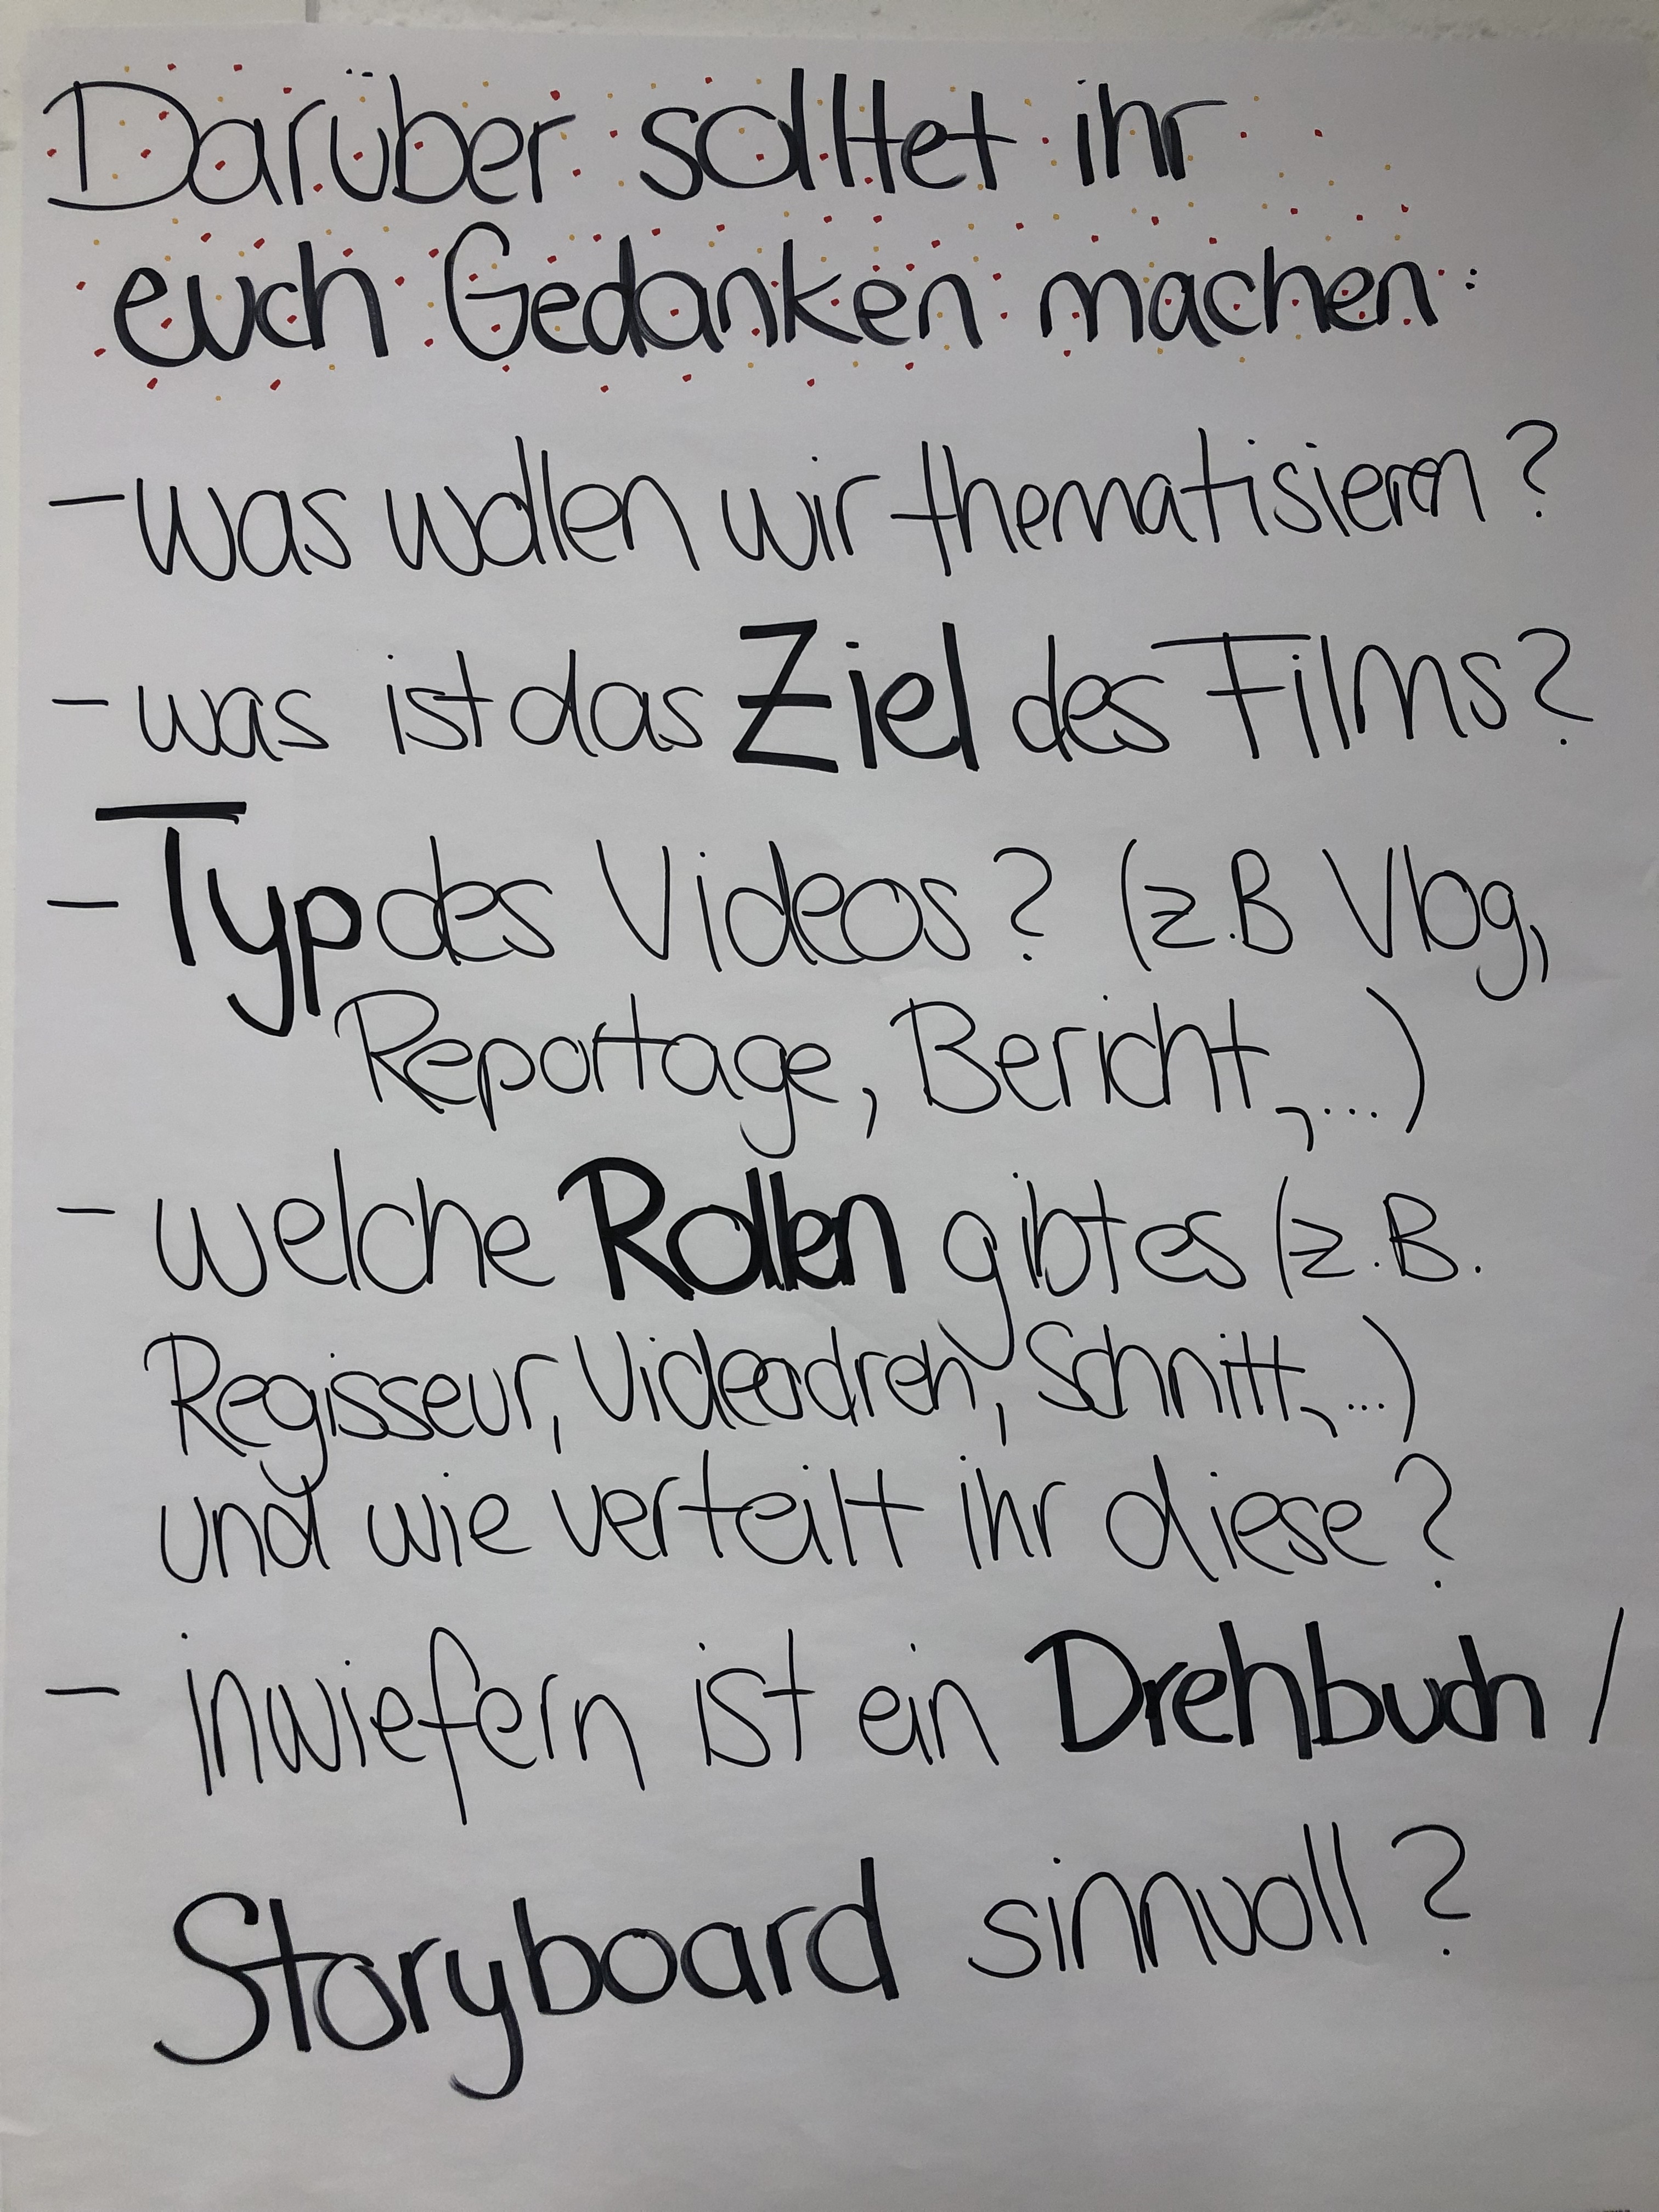 Darüber solltet ihr
euch Gedanken machen:
- was wollen wir thematisieren?
- was ist das Ziel des Films?
- Typ des Videos? (z.B Vlog,
Reportage, Bericht,...)
- welche Rollen gibt es (z.B.
Regisseur, Videodreh, Schnitt,...)
und wie verteilt ihr diese?
- inwiefern ist ein Drehbuch /
Storyboard sinnvoll?